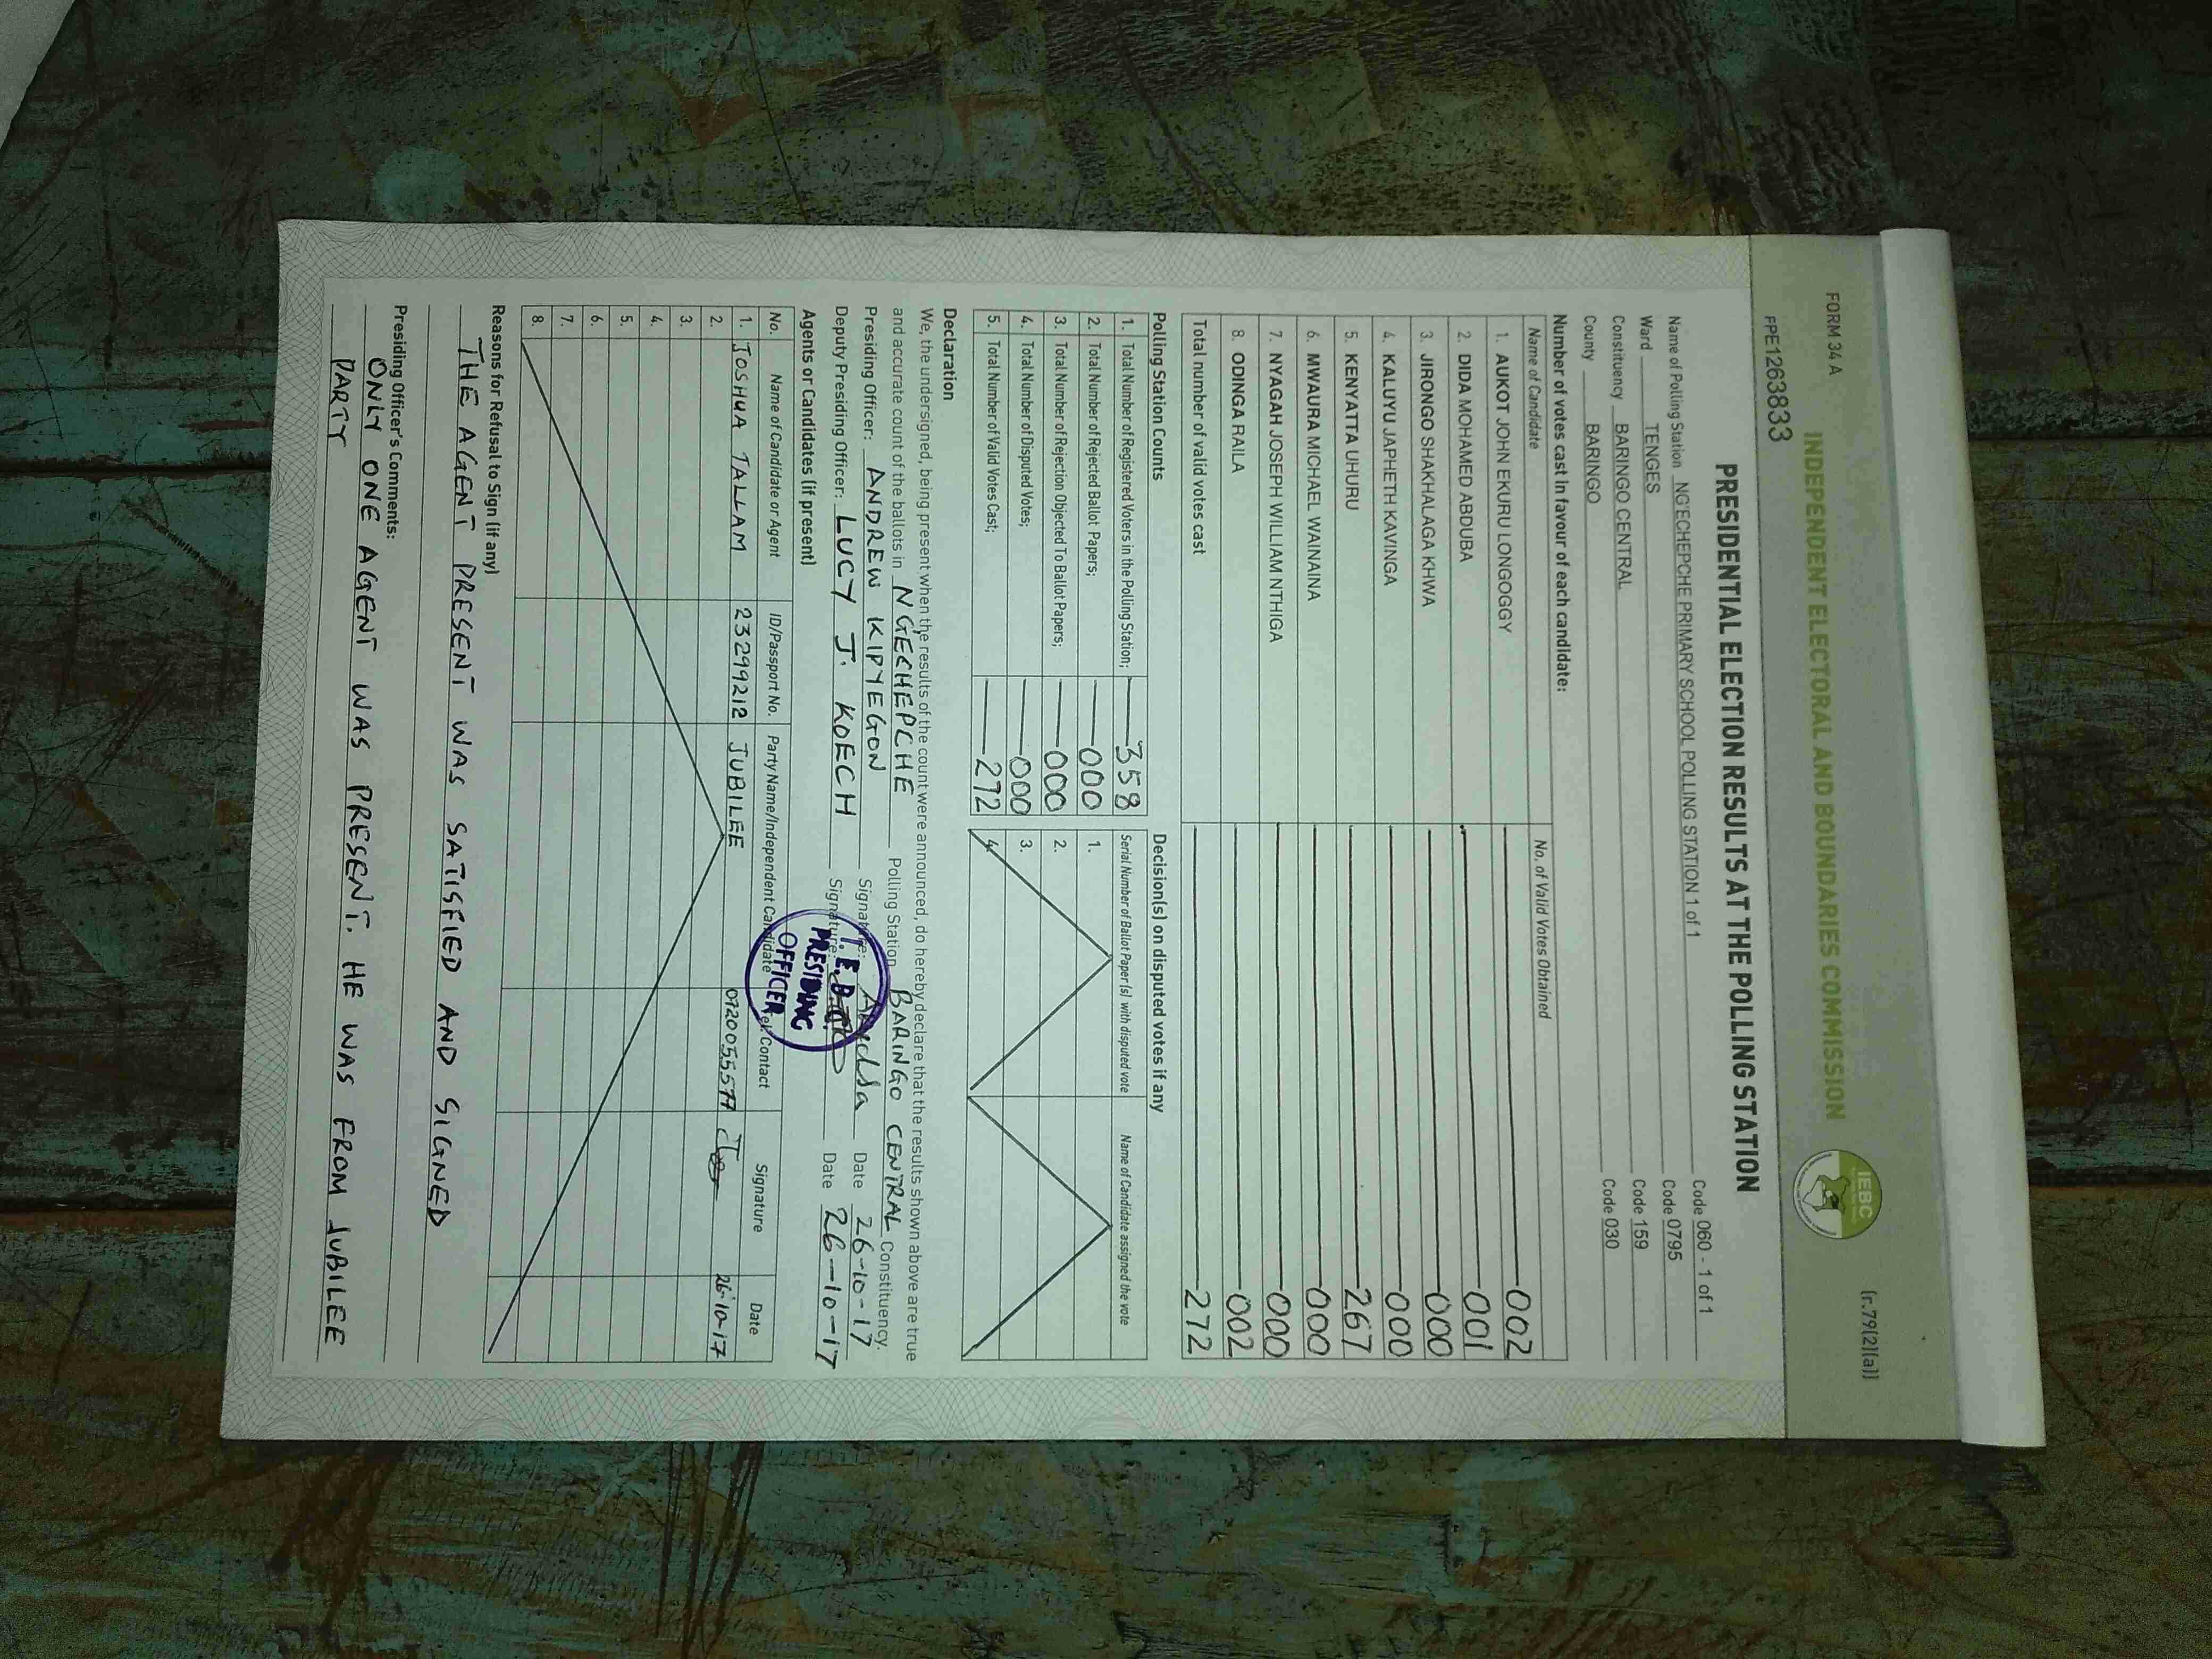 FORM 34 A
(r.79(2)(a))
INDEPENDENT ELECTORAL AND BOUNDARIES COMMISSION
IEBC
FPE1263833
PRESIDENTIAL ELECTION RESULTS AT THE POLLING STATION
Name of Polling Station NG'ECHEPCHE PRIMARY SCHOOL POLLING STATION 1 of 1 Code 060 - 1 of 1
Ward TENGES Code 0795
Constituency BARINGO CENTRAL Code 159
County BARINGO Code 030
Number of votes cast in favour of each candidate:
Name of Candidate No. of Valid Votes Obtained
1. AUKOT JOHN EKURU LONGOGGY 002
2. DIDA MOHAMED ABDUBA 001
3. JIRONGO SHAKHALAGA KHWA 000
4. KALUYU JAPHETH KAVINGA 000
5. KENYATTA UHURU 267
6. MWAURA MICHAEL WAINAINA 000
7. NYAGAH JOSEPH WILLIAM NTHIGA 000
8. ODINGA RAILA 002
Total number of valid votes cast 272
Polling Station Counts Decision(s) on disputed votes if any
1. Total Number of Registered Voters in the Polling Station; 358 Serial Number of Ballot Paper (s) with disputed vote Name of Candidate assigned the vote
2. Total Number of Rejected Ballot Papers; 000 1.
3. Total Number of Rejection Objected To Ballot Papers; 000 2.
4. Total Number of Disputed Votes; 000 3.
5. Total Number of Valid Votes Cast; 272 4.
Declaration
We, the undersigned, being present when the results of the count were announced, do hereby declare that the results shown above are true
and accurate count of the ballots in NG'ECHEPCHE Polling Station BARINGO CENTRAL Constituency.
Presiding Officer: ANDREW KIPYEGON Signature: Date 26-10-17
Deputy Presiding Officer: LUCY J. KOECH Signature: Date 26-10-17
I.E.B.C.
PRESIDING
OFFICER
Agents or Candidates (if present)
No. Name of Candidate or Agent ID/Passport No. Party Name/Independent Candidate Tel. Contact Signature Date
1. JOSHUA TALLAM 23299212 JUBILEE 0720055577 26-10-17
2.
3.
4.
5.
6.
7.
8.
Reasons for Refusal to Sign (if any)
THE AGENT PRESENT WAS SATISFIED AND SIGNED
Presiding Officer's Comments:
ONLY ONE AGENT WAS PRESENT. HE WAS FROM JUBILEE
PARTY